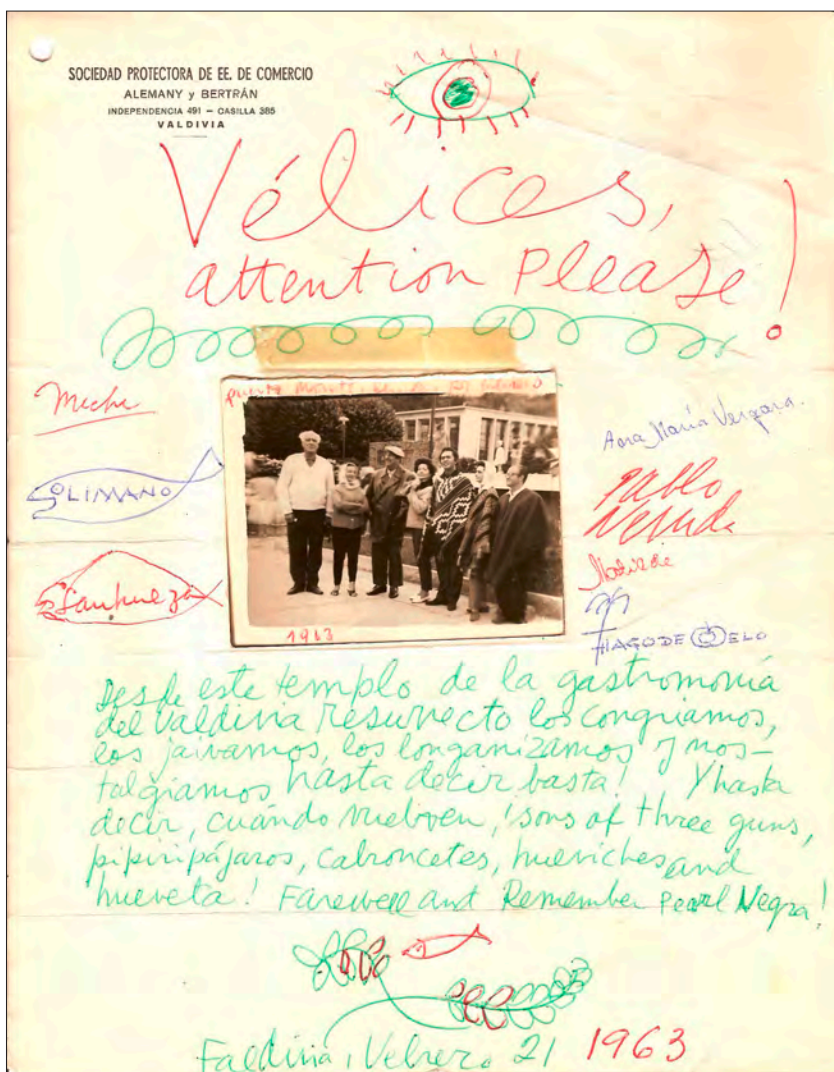 SOCIEDAD PROTECTORA DE EE. DE COMERCIO
ALEMANY y BERTRÁN
INDEPENDENCIA 491 – CASILLA 385
VALDIVIA
Vélices,
attention Please!
Puerto Montt
1963
Meche
SOLIMANO
Sanhueza
Ana María Vergara.
Pablo
Neruda
Matilde
THIAGO DE MELO
Desde este templo de la gastronomía
del Valdivia resurrecto los congriamos,
los jaivamos, los longanizamos y nos-
talgiamos hasta decir basta! Y hasta
decir, cuándo vuelven, sons of three guns,
pipiripájaros, cabroncetes, hueviches and
hueveta! Farewell and Remember Pearl Negra!
Faldivia, Vebrero 21 1963